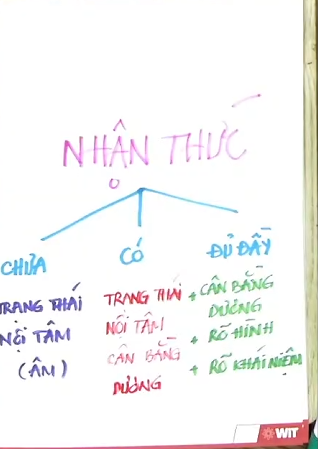 NHẬN THỨC
CHƯA
TRẠNG THÁI
NỘI TÂM
(ÂM)
CÓ
TRẠNG THÁI
NỘI TÂM
CÂN BẰNG
DƯƠNG
ĐỦ ĐẦY
+ CÂN BẰNG
DƯƠNG
+ RÕ HÌNH
+ RÕ KHÁI NIỆM
WIT